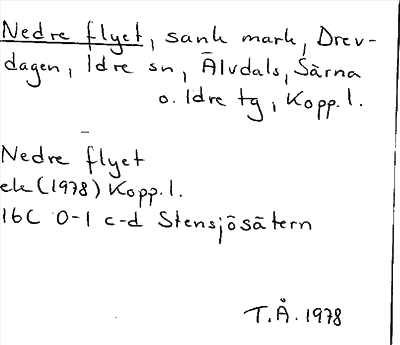 Nedre flyet, sank mark, Drev-
dagen, Idre sn, Älvdals, Särna
o. Idre tg, Kopp. l.
Nedre flyet
ek (1978) Kopp. l.
16C 0-1 c-d Stensjösätern
T.Å. 1978